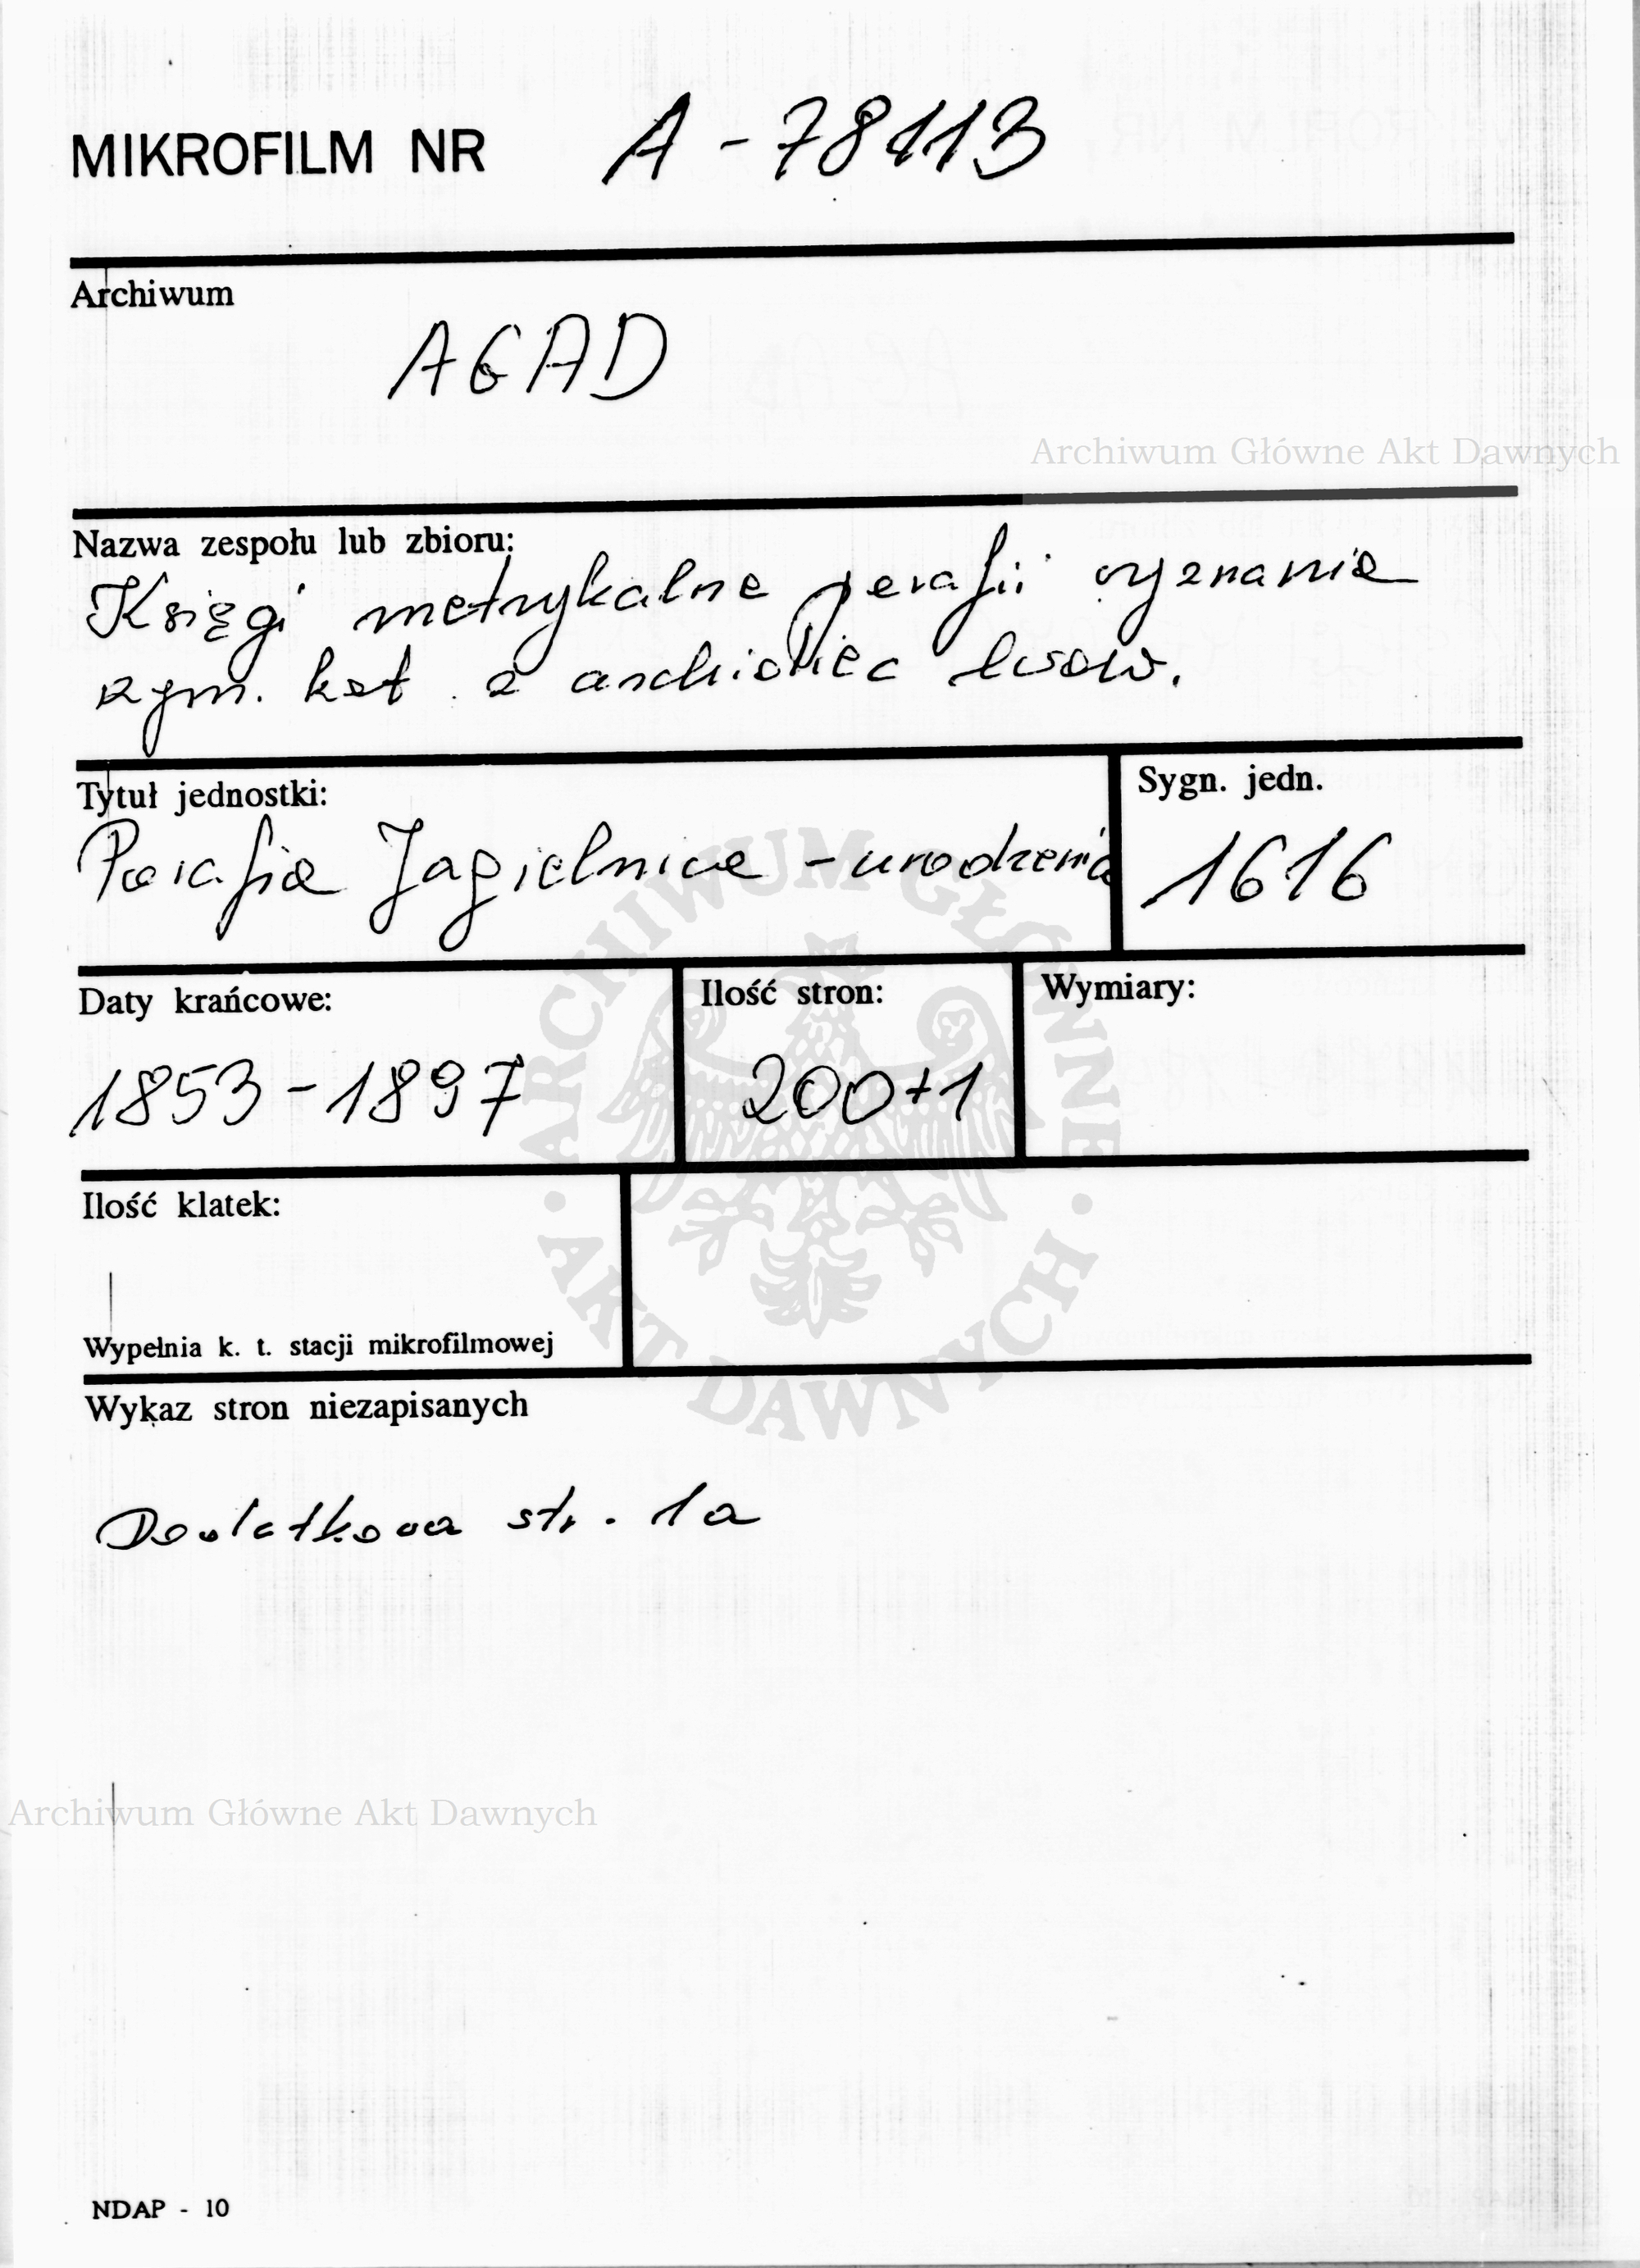 MIKROFILM NR A-78113
Archiwum
AGAD
Archiwum Główne Akt Dawnych
Nazwa zespołu lub zbioru:
Księgi metrykalne parafii wyznania
rzym. kat. z archidiec lwow.
Tytuł jednostki:
Parafia Jagielnica - urodzenia
Sygn. jedn.
1616
Daty krańcowe:
1853-1897
Ilość stron:
200+1
Wymiary:
Ilość klatek:
Wypełnia k. t. stacji mikrofilmowej
ARCHIWUM GŁÓWNE · AKT DAWNYCH ·
Wykaz stron niezapisanych
Dodatkowa str. 1a
Archiwum Główne Akt Dawnych
NDAP - 10